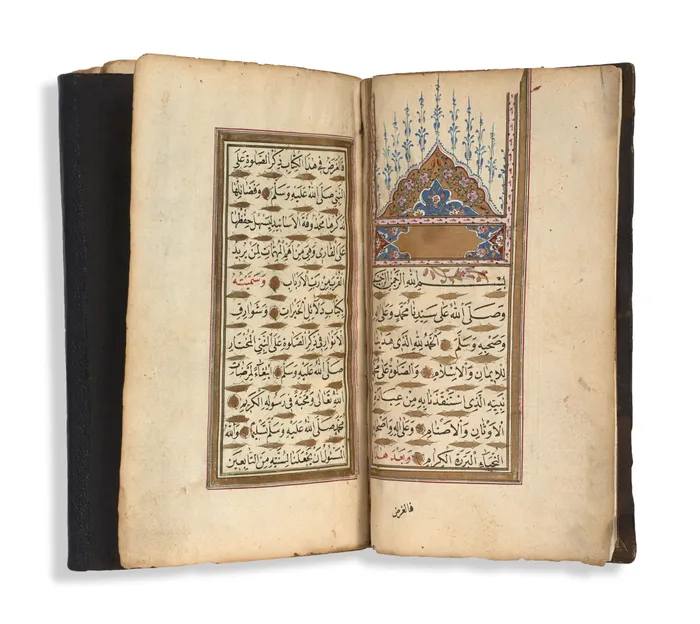 بسم الله الرحمن الرحيم
وصلى الله على سيدنا محمد وعلى اله
وصحبه وسلم الحمد لله الذى هدينا
للايمان والاسلام والصلوة على محمد
نبيه الذى استنقذنا به من عبادة
الاوثان والاصنام وعلى اله واصحابه
النجباء البررة الكرام وبعد هذا
فالغرض
فالغرض فى هذا الكتاب ذكر الصلوة على
النبى صلى الله عليه وسلم وفضائلها
نذكرها محذوفة الاسانيد ليسهل حفظها
على القارئ وهى من اهم المهمات لمن يريد
القرب من رب الارباب وسميته
كتاب دلائل الخيرات وشوارق
الانوار فى ذكر الصلوة على النبى المختار
صلى الله عليه وسلم ابتغاء لمرضات
الله تعالى ومحبة فى رسوله الكريم
محمد صلى الله عليه وسلم تسليما والله
المسئول ان يجعلنا لسنته من التابعين